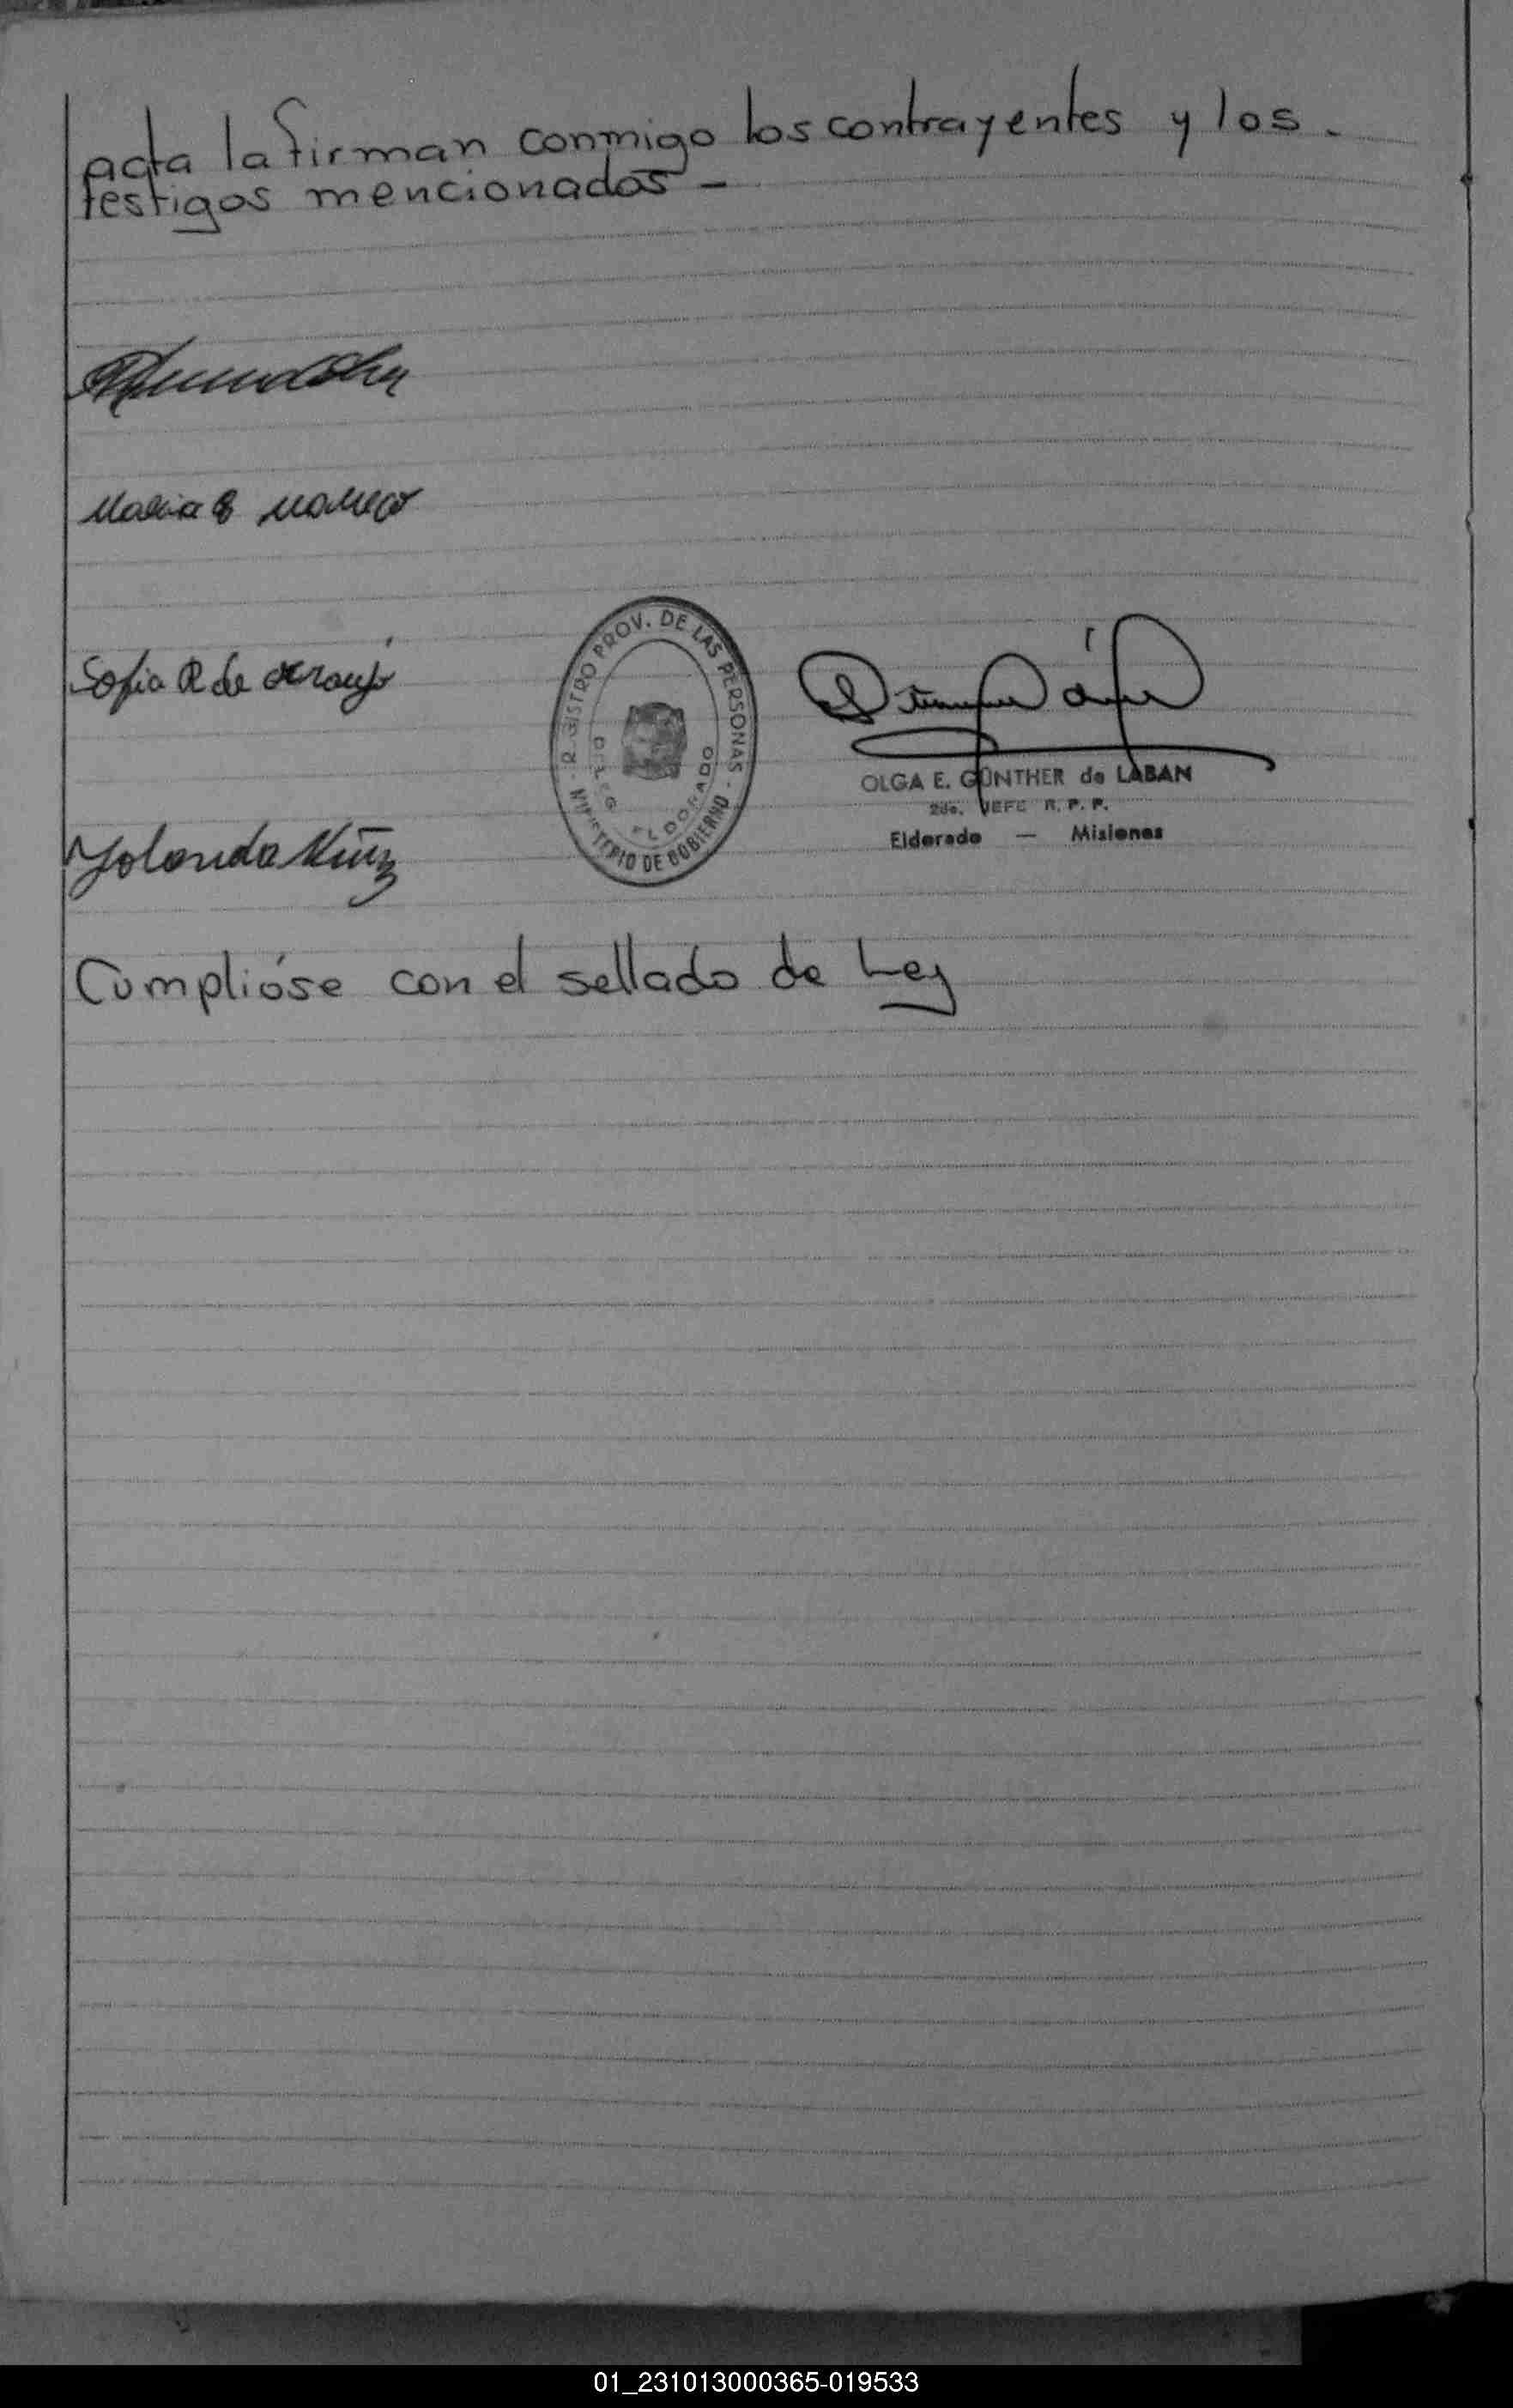 acta la firman conmigo los contrayentes y los -
testigos mencionados -
Maria
Sofia R de Araujo
REGISTRO PROV. DE LAS PERSONAS - MINISTERIO DE GOBIERNO -
DELEG ELDORADO
OLGA E. GÜNTHER de LABAN
2do. JEFE R. P. P.
Eldorado — Misiones
Yolanda
Cumplióse con el sellado de Ley
01_231013000365-019533